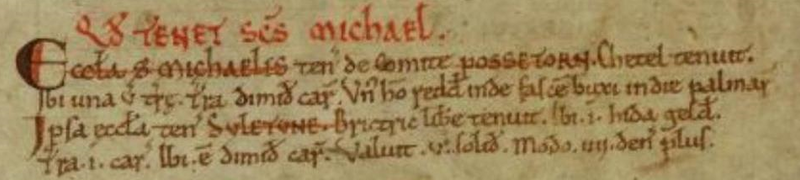 Qđ TENET SC̄S MICHAEL.
Eccła S̄ MICHAELIS teñ de Comite POSSETORN. Chetel tenuit.
Ibi una v̄ træ. Tr̄a dimid̄ car̄. Vn̄ hō redđ inde fascē buxi in die palmar̄
Ipsa eccła teñ SVLETONE. Brictric libe tenuit. Ibi .i. hida gelđ.
Tr̄a .i. car̄. Ibi .ē dimid̄ car̄. Valuit .v. soliđ. Modo .iiij. deñ plus.